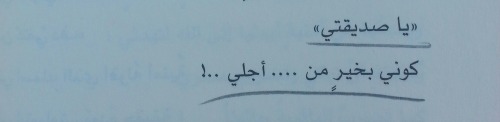 «يا صديقتي»
كوني بخيرٍ من .... أجلي ..!